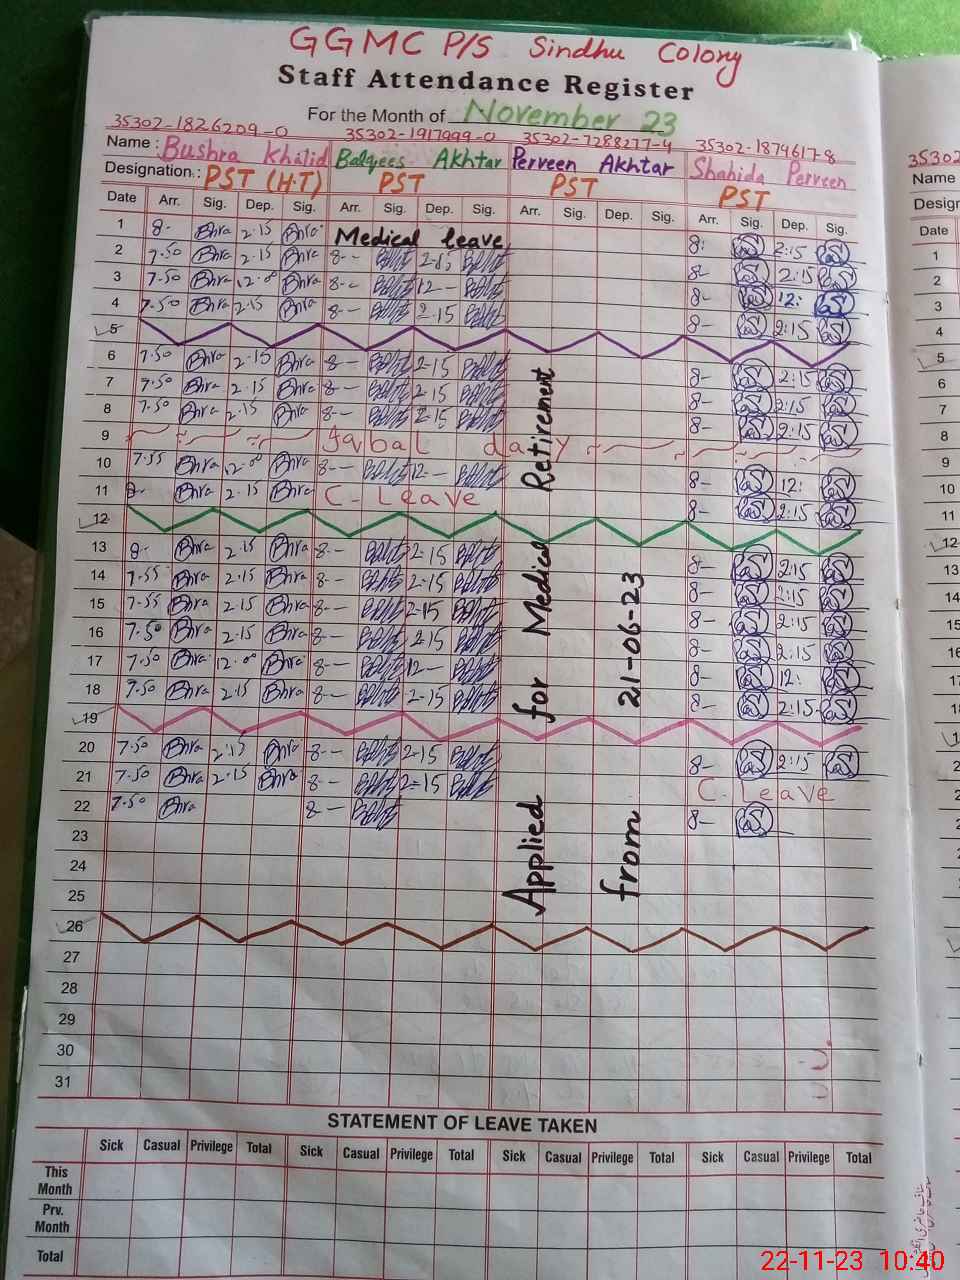 GGMC P/S Sindhu Colony
Staff Attendance Register
For the Month of November 23
35302-1826209-0 35302-1917999-0 35302-7288277-4 35302-1879617-8
Name : Bushra Khalid Balqees Akhtar Perveen Akhtar Shahida Perveen
Designation.: PST (H.T) PST PST PST
Date Arr. Sig. Dep. Sig. Arr. Sig. Dep. Sig. Arr. Sig. Dep. Sig. Arr. Sig. Dep. Sig.
1 8- Bhra 2.15 Bhra Medical leave 8: 2:15
2 7.50 Bhra 2.15 Bhra 8-- 2-15 8- 2:15
3 7.50 Bhra 12.00 Bhra 8-- 12-- 8- 12:
4 7.50 Bhra 2.15 Bhra 8-- 2-15 8- 2:15
5
6 7.50 Bhra 2.15 Bhra 8-- 2.15 8- 2:15
7 7.50 Bhra 2.15 Bhra 8-- 2.15 8- 2:15
8 7.50 Bhra 2.15 Bhra 8-- 2.15 8- 2:15
9 Iqbal day
10 7.55 Bhra 12.00 Bhra 8-- 12-- 8- 12:
11 8- Bhra 2.15 Bhra C- Leave 8- 2:15
12
13 8- Bhra 2.15 Bhra 8-- 2-15 8- 2:15
14 7.55 Bhra 2.15 Bhra 8-- 2-15 8- 2:15
15 7.55 Bhra 2.15 Bhra 8-- 2-15 8- 2:15
16 7.50 Bhra 2.15 Bhra 8-- 2.15 8- 2:15
17 7.50 Bhra 12.00 Bhra 8-- 12-- 8- 12:
18 7.50 Bhra 2.15 Bhra 8-- 2-15 8- 2:15
19
20 7.50 Bhra 2.15 Bhra 8-- 2-15 8- 2:15
21 7.50 Bhra 2.15 Bhra 8-- 2=15 C- Leave
22 7.50 Bhra 8-- 8-
23
24
25
26
27
28
29
30
31
Applied for Medical Retirement
from 21-06-23
STATEMENT OF LEAVE TAKEN
Sick Casual Privilege Total Sick Casual Privilege Total Sick Casual Privilege Total Sick Casual Privilege Total
This Month
Prv. Month
Total
35302
Name
Date
1
2
3
4
5
6
7
8
9
10
11
12
13
14
15
16
17
18
22-11-23 10:40